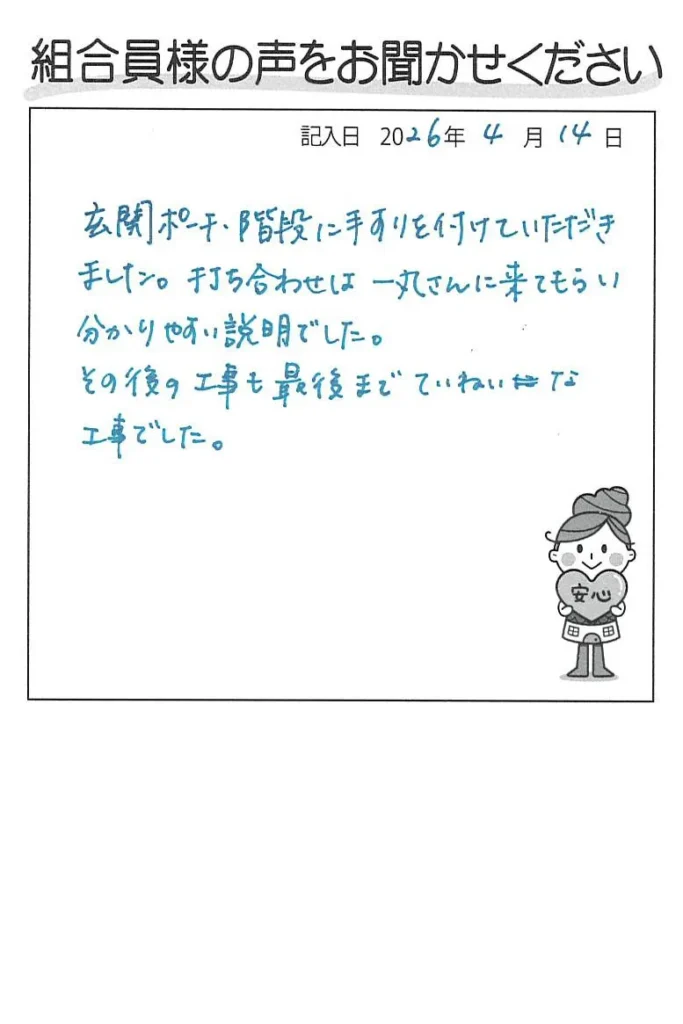 組合員様の声をお聞かせください
記入日 2026年 4月 14日
玄関ポーチ・階段に手すりを付けていただき
ました。打ち合わせは 一丸さんに来てもらい
分かりやすい説明でした。
その後の工事も最後まで ていねいな
工事でした。
安心